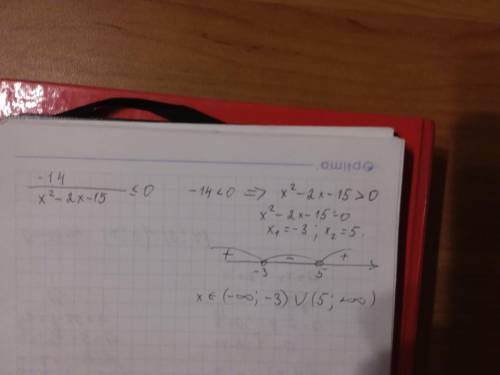 optima
-14 / x²-2x-15 ≤ 0
-14<0 => x²-2x-15>0
x²-2x-15=0
x₁=-3 ; x₂=5.
+ - +
-3 5
x ∈ (-∞; -3) ∪ (5; +∞)